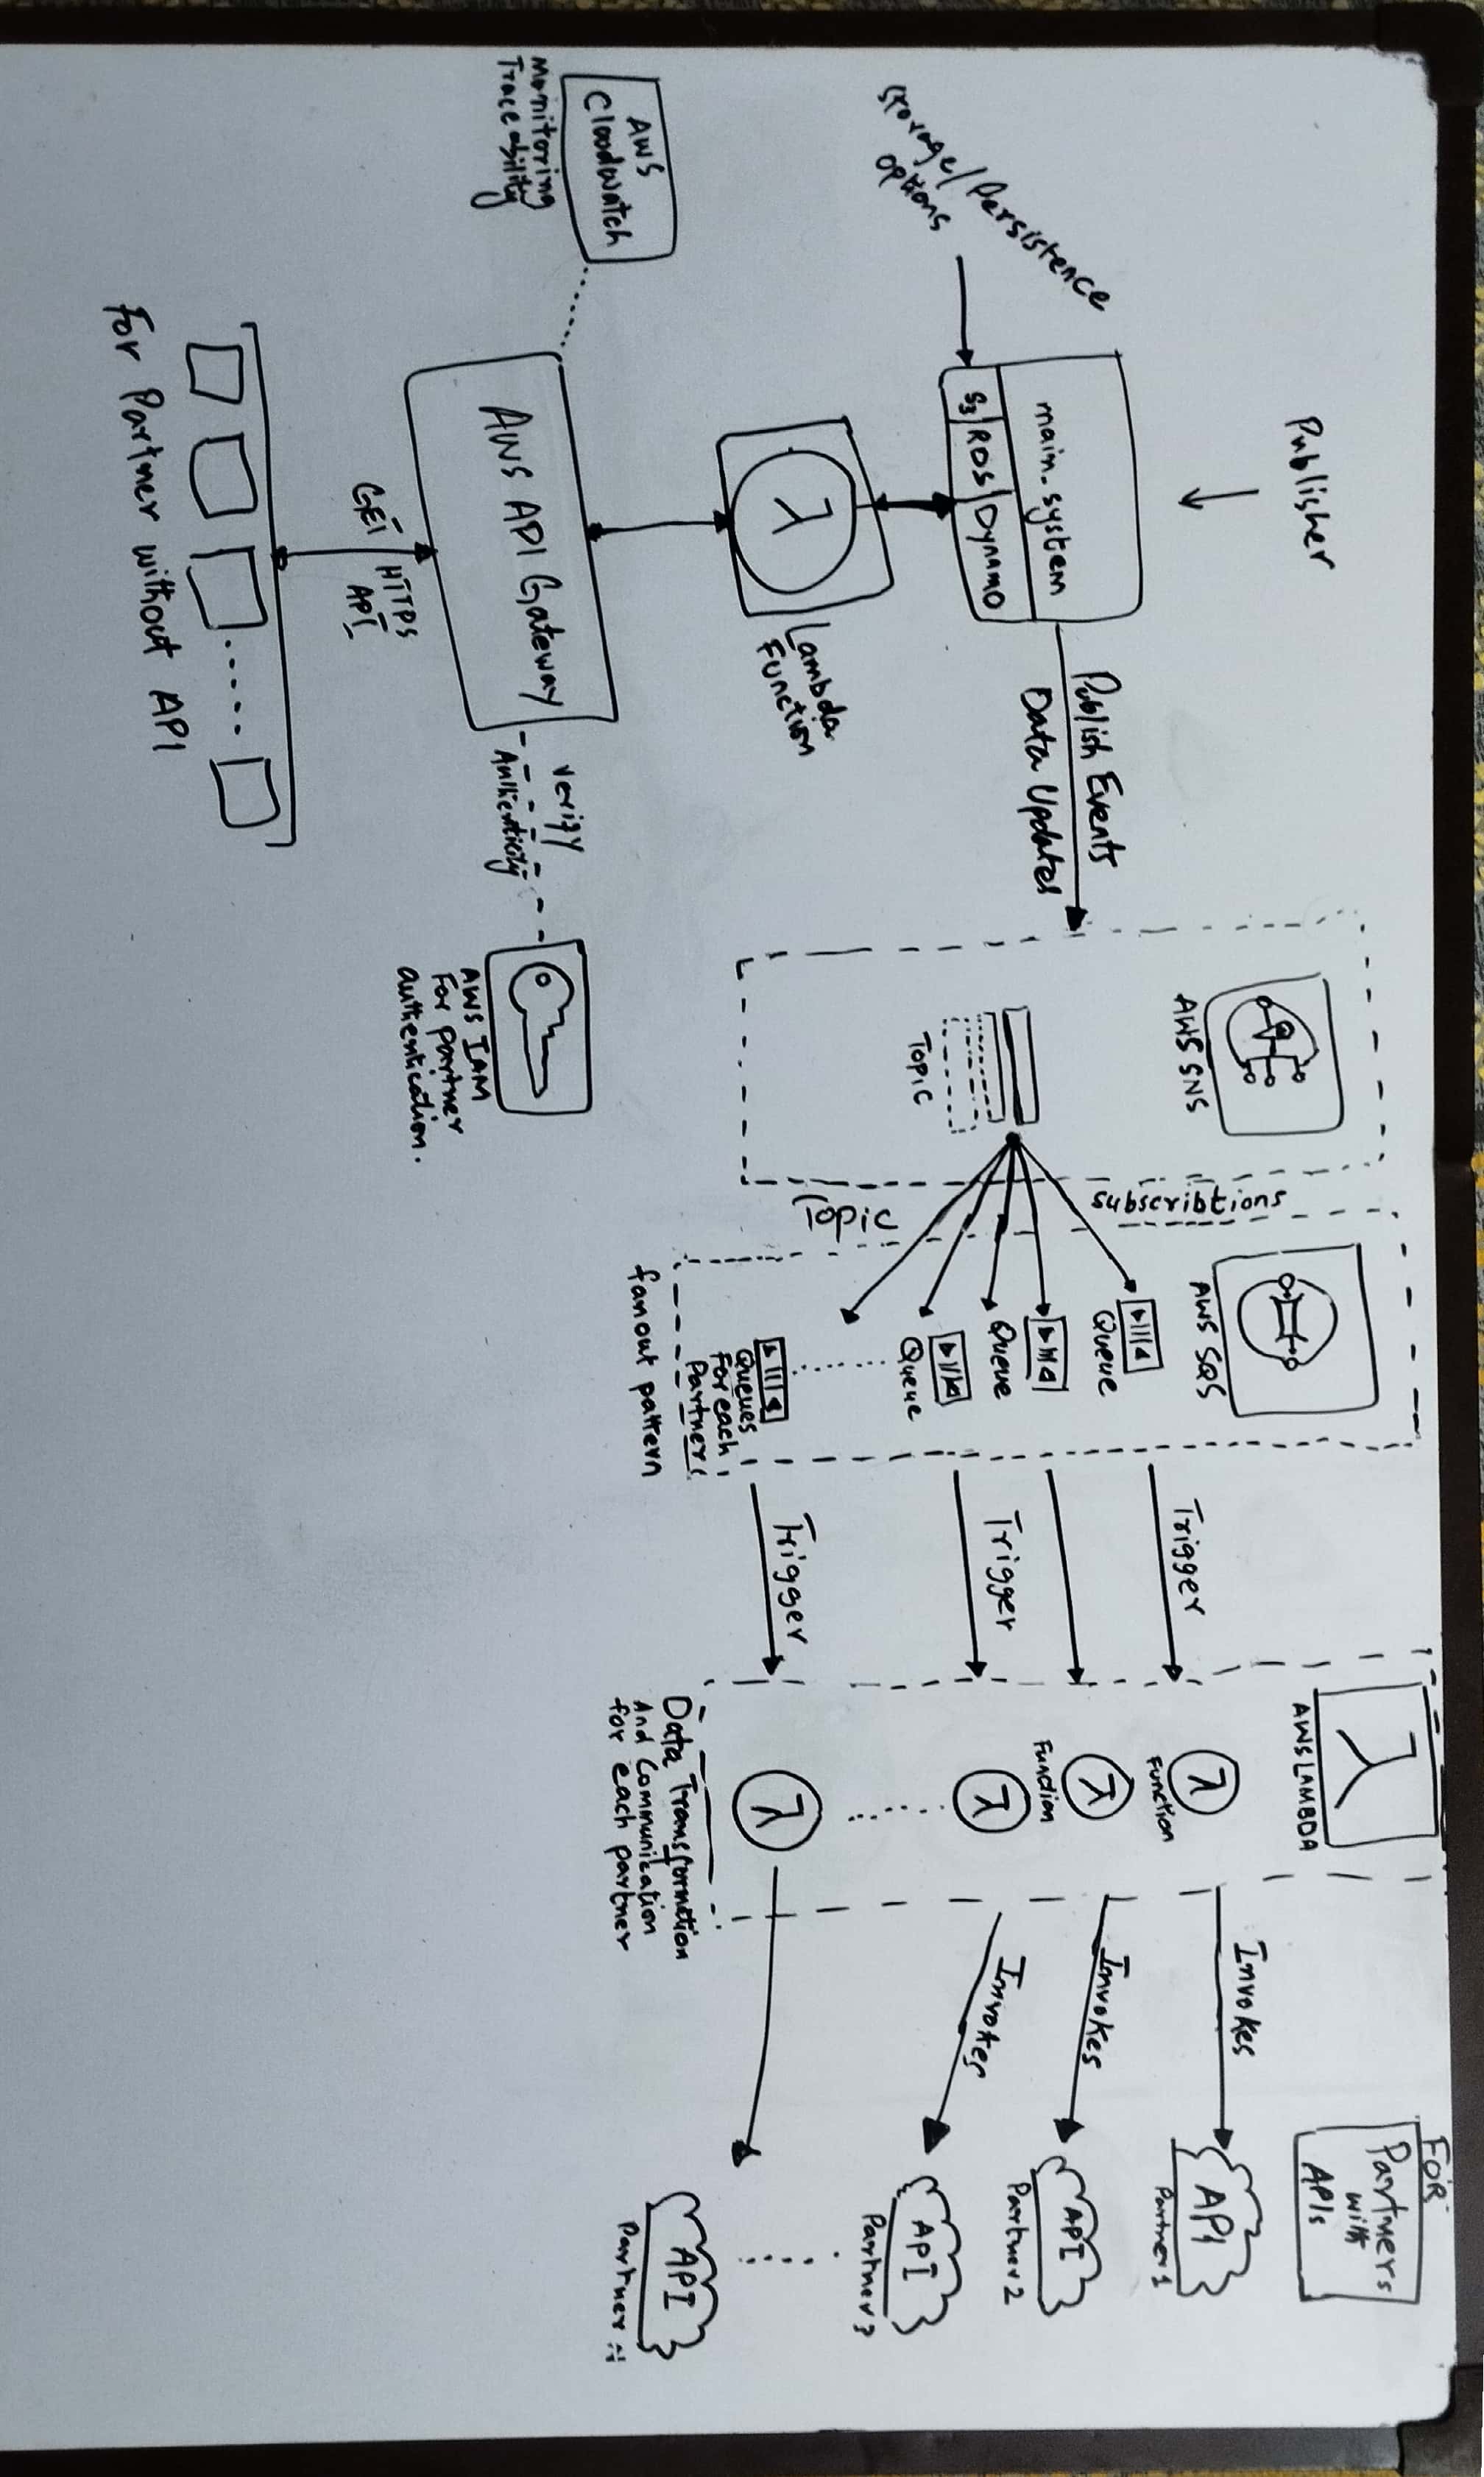 Publisher
Storage/Persistence
options
main.system
S3 RDS Dynamo
Publish Events
Data Updates
Lambda
Function
AWS
Cloudwatch
Monitoring
Traceability
AWS API Gateway
verify
Authenticity
AWS IAM
For partner
authentication.
GET
HTTPS
API
For Partner without API
AWS SNS
TOPIC
subscribtions
Topic
AWS SQS
Queue
Queue
Queue
Queues
For each
Partner
fanout pattern
Trigger
Trigger
Trigger
λ
AWS LAMBDA
λ
Function
λ
Function
λ
λ
Data Transformation
And Communication
for each partner
Invokes
Invokes
Invokes
FOR
Partners
with
APIs
API
Partner 1
API
Partner 2
API
Partner 3
API
Partner
λ